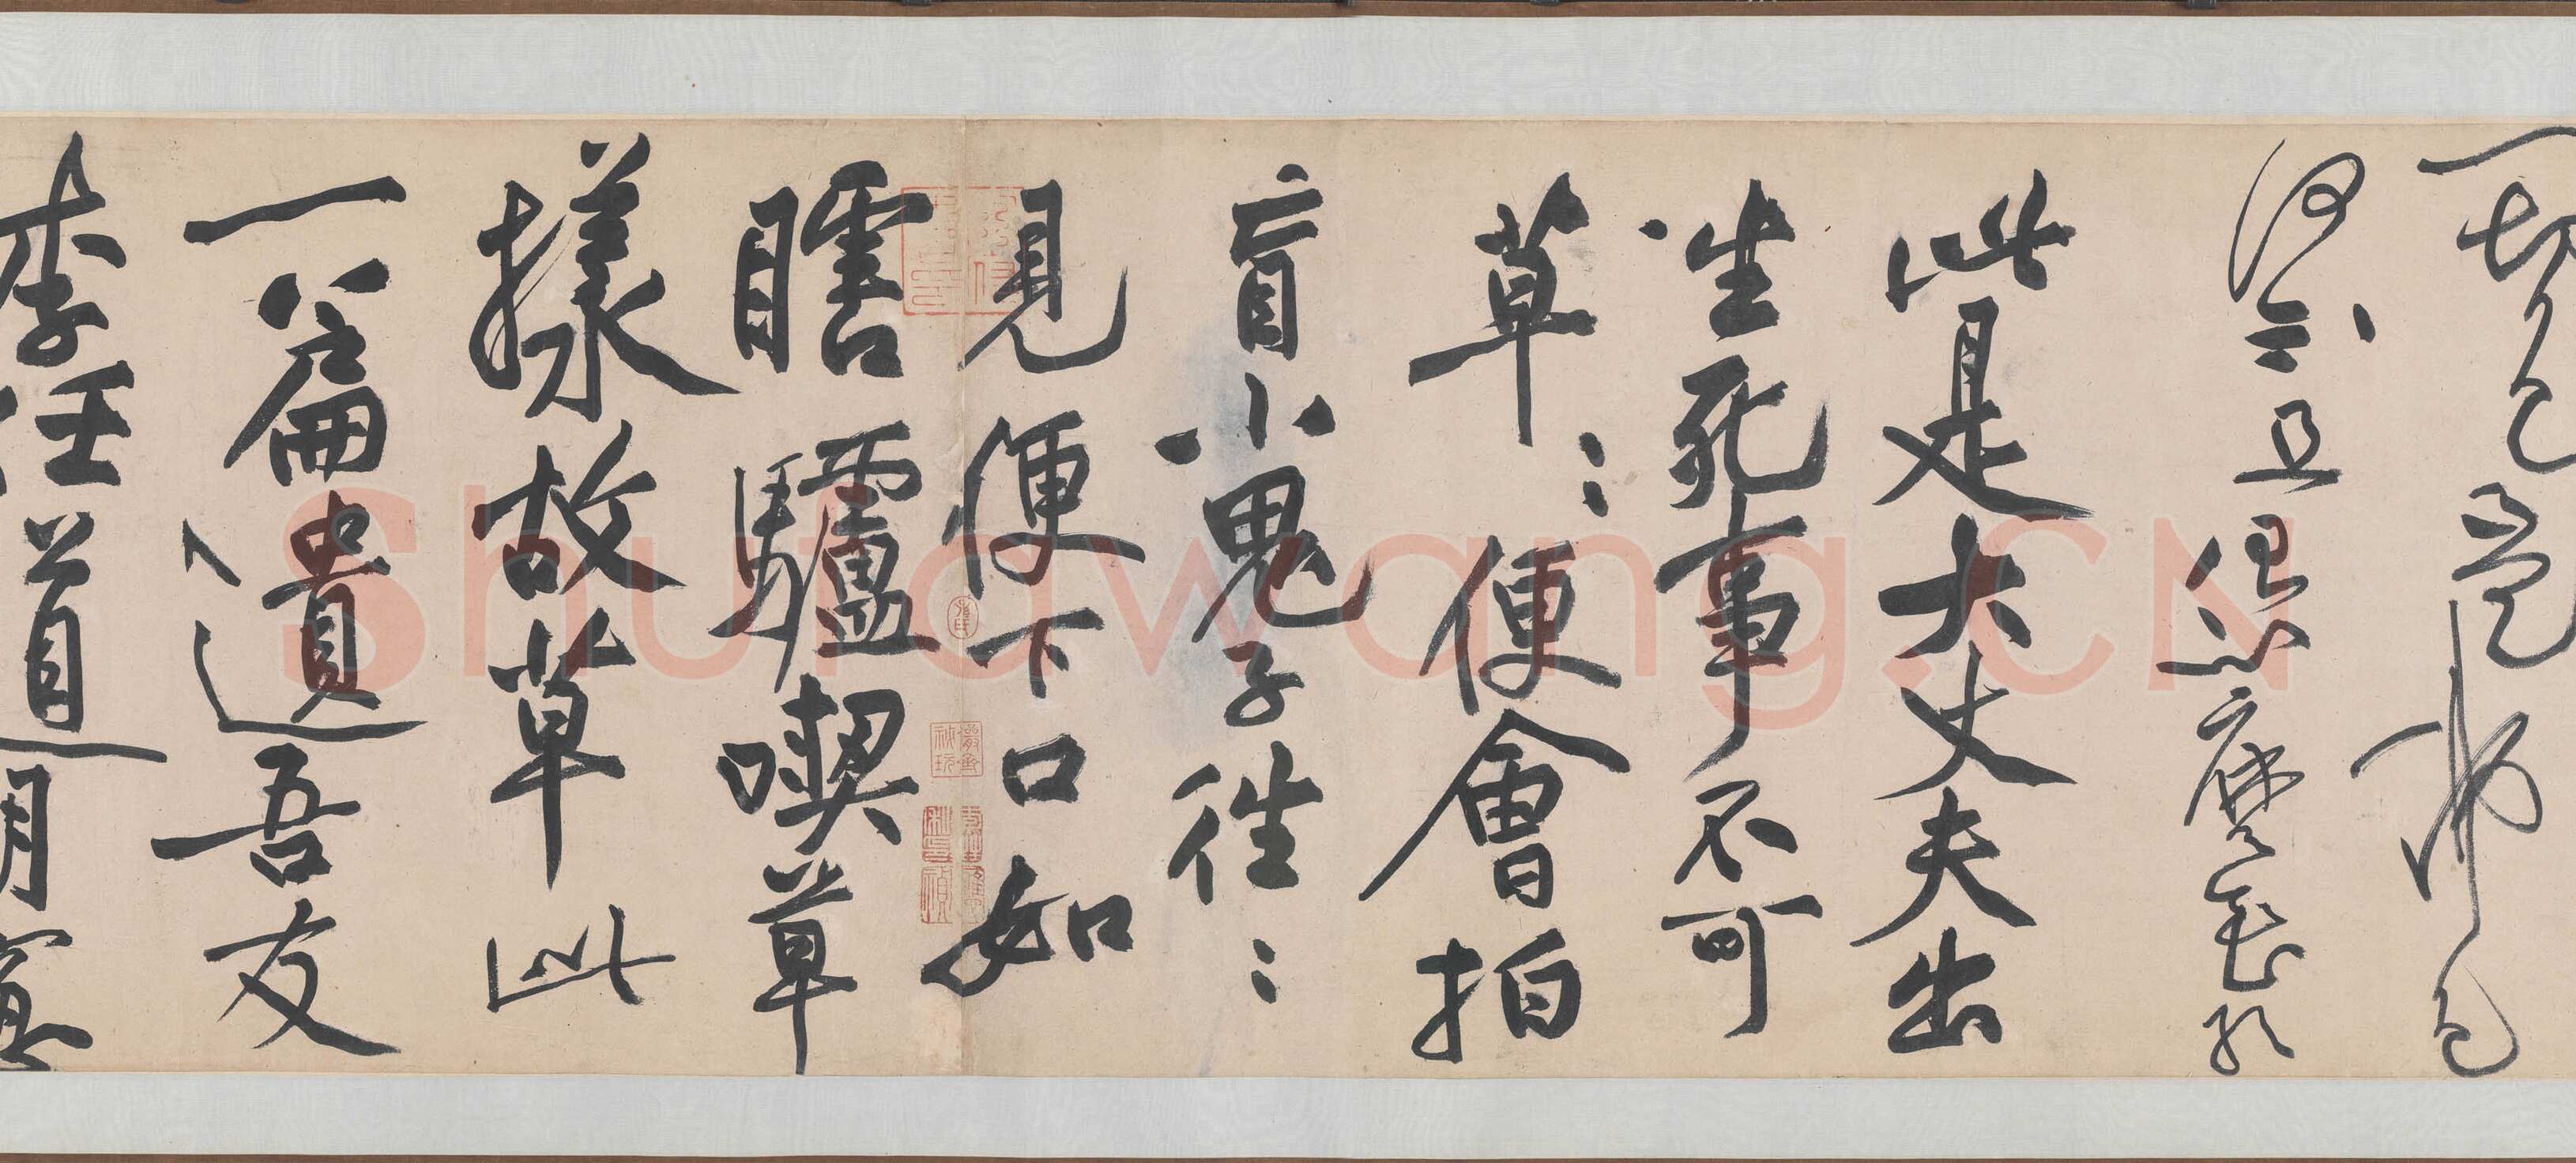 一切
且恁麼
此是大丈夫出
生死事不可
草〻便會拍
盲小鬼子往〻
見便下口如
瞎驢喫草
樣故草此
一篇遺吾友
李任道明窓
Shufawang.CN